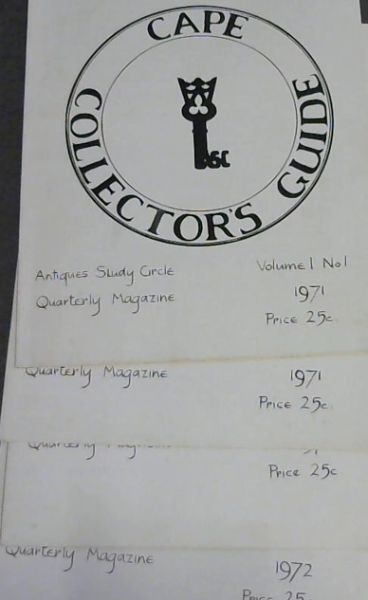 CAPE
COLLECTOR'S GUIDE
ASC
Antiques Study Circle Volume 1 No 1
Quarterly Magazine 1971
Price 25c.
Quarterly Magazine 1971
Price 25c.
Quarterly
Price 25c
Quarterly Magazine 1972
Price 25